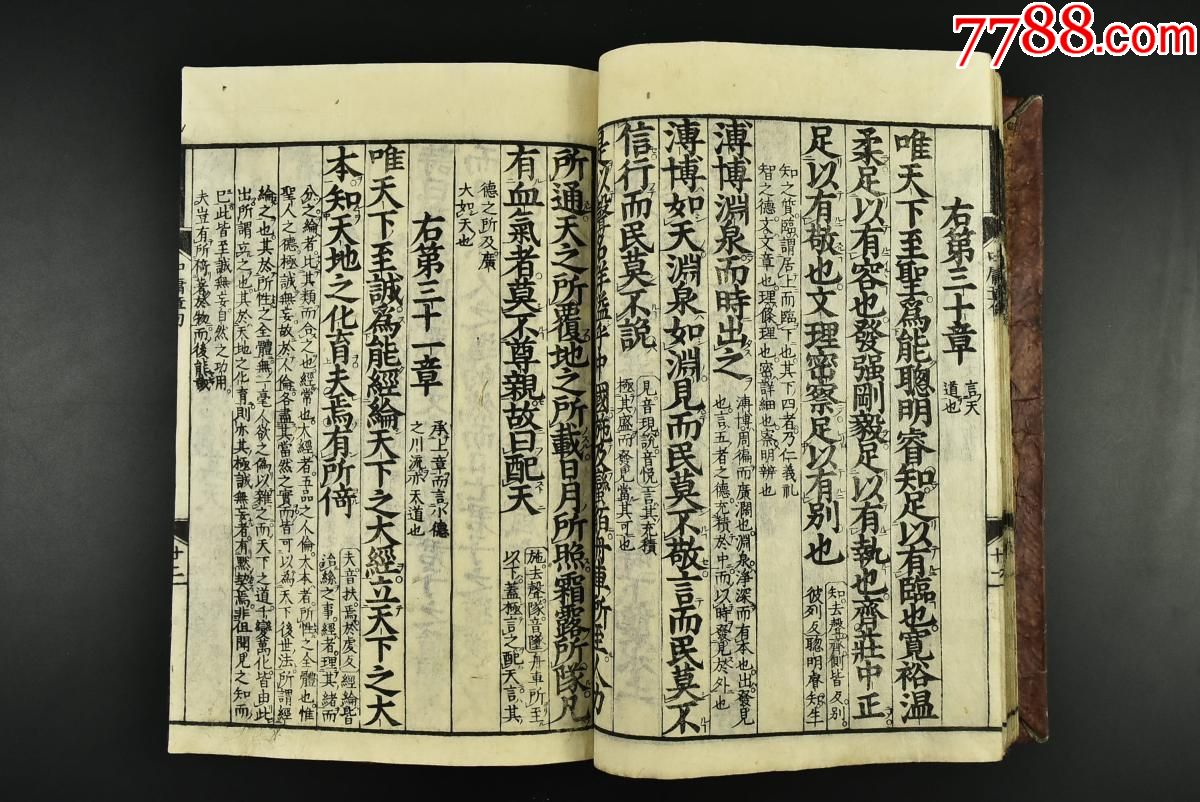 7788.com
右第三十章
言天
道也
唯天下至聖爲能聰明睿知足以有臨也寬裕温
柔足以有容也發强剛毅足以有執也齊莊中正
足以有敬也文理密察足以有別也
知去聲齊側皆反別
彼列反聰明睿知生
知之質臨謂居上而臨下也其下四者乃仁義礼
智之德文文章也理條理也密詳細也察明辨也
溥博淵泉而時出之
溥博周徧而廣濶也淵泉淨深而有本也出發見
也言五者之德充積於中而以時發見於外也
溥博如天淵泉如淵見而民莫不敬言而民莫不
信行而民莫不說
見音現說音悅言其充積
極其盛而發見當其可也
所通天之所覆地之所載日月所照霜露所隊凡
有血氣者莫不尊親故曰配天
施去聲隊音墜舟車所至
以下蓋極言之配天言其
德之所及廣
大如天也
右第三十一章
承上章而言小德
之川流亦天道也
唯天下至誠爲能經綸天下之大經立天下之大
本知天地之化育夫焉有所倚
夫音扶焉於虔反經綸皆
治絲之事經者理其緒而
分之綸者比其類而合之也經常也大經者五品之人倫大本者所性之全體也惟
聖人之德極誠無妄故於人倫各盡其當然之實而皆可以爲天下後世法所謂經
綸之也其於所性之全體無一毫人欲之僞以雜之而天下之道千變萬化皆由此
出所謂立之也其於天地之化育則亦其極誠無妄者有黙契焉非但聞見之知而
巳此皆至誠無妄自然之功用
夫豈有所倚著於物而後能哉